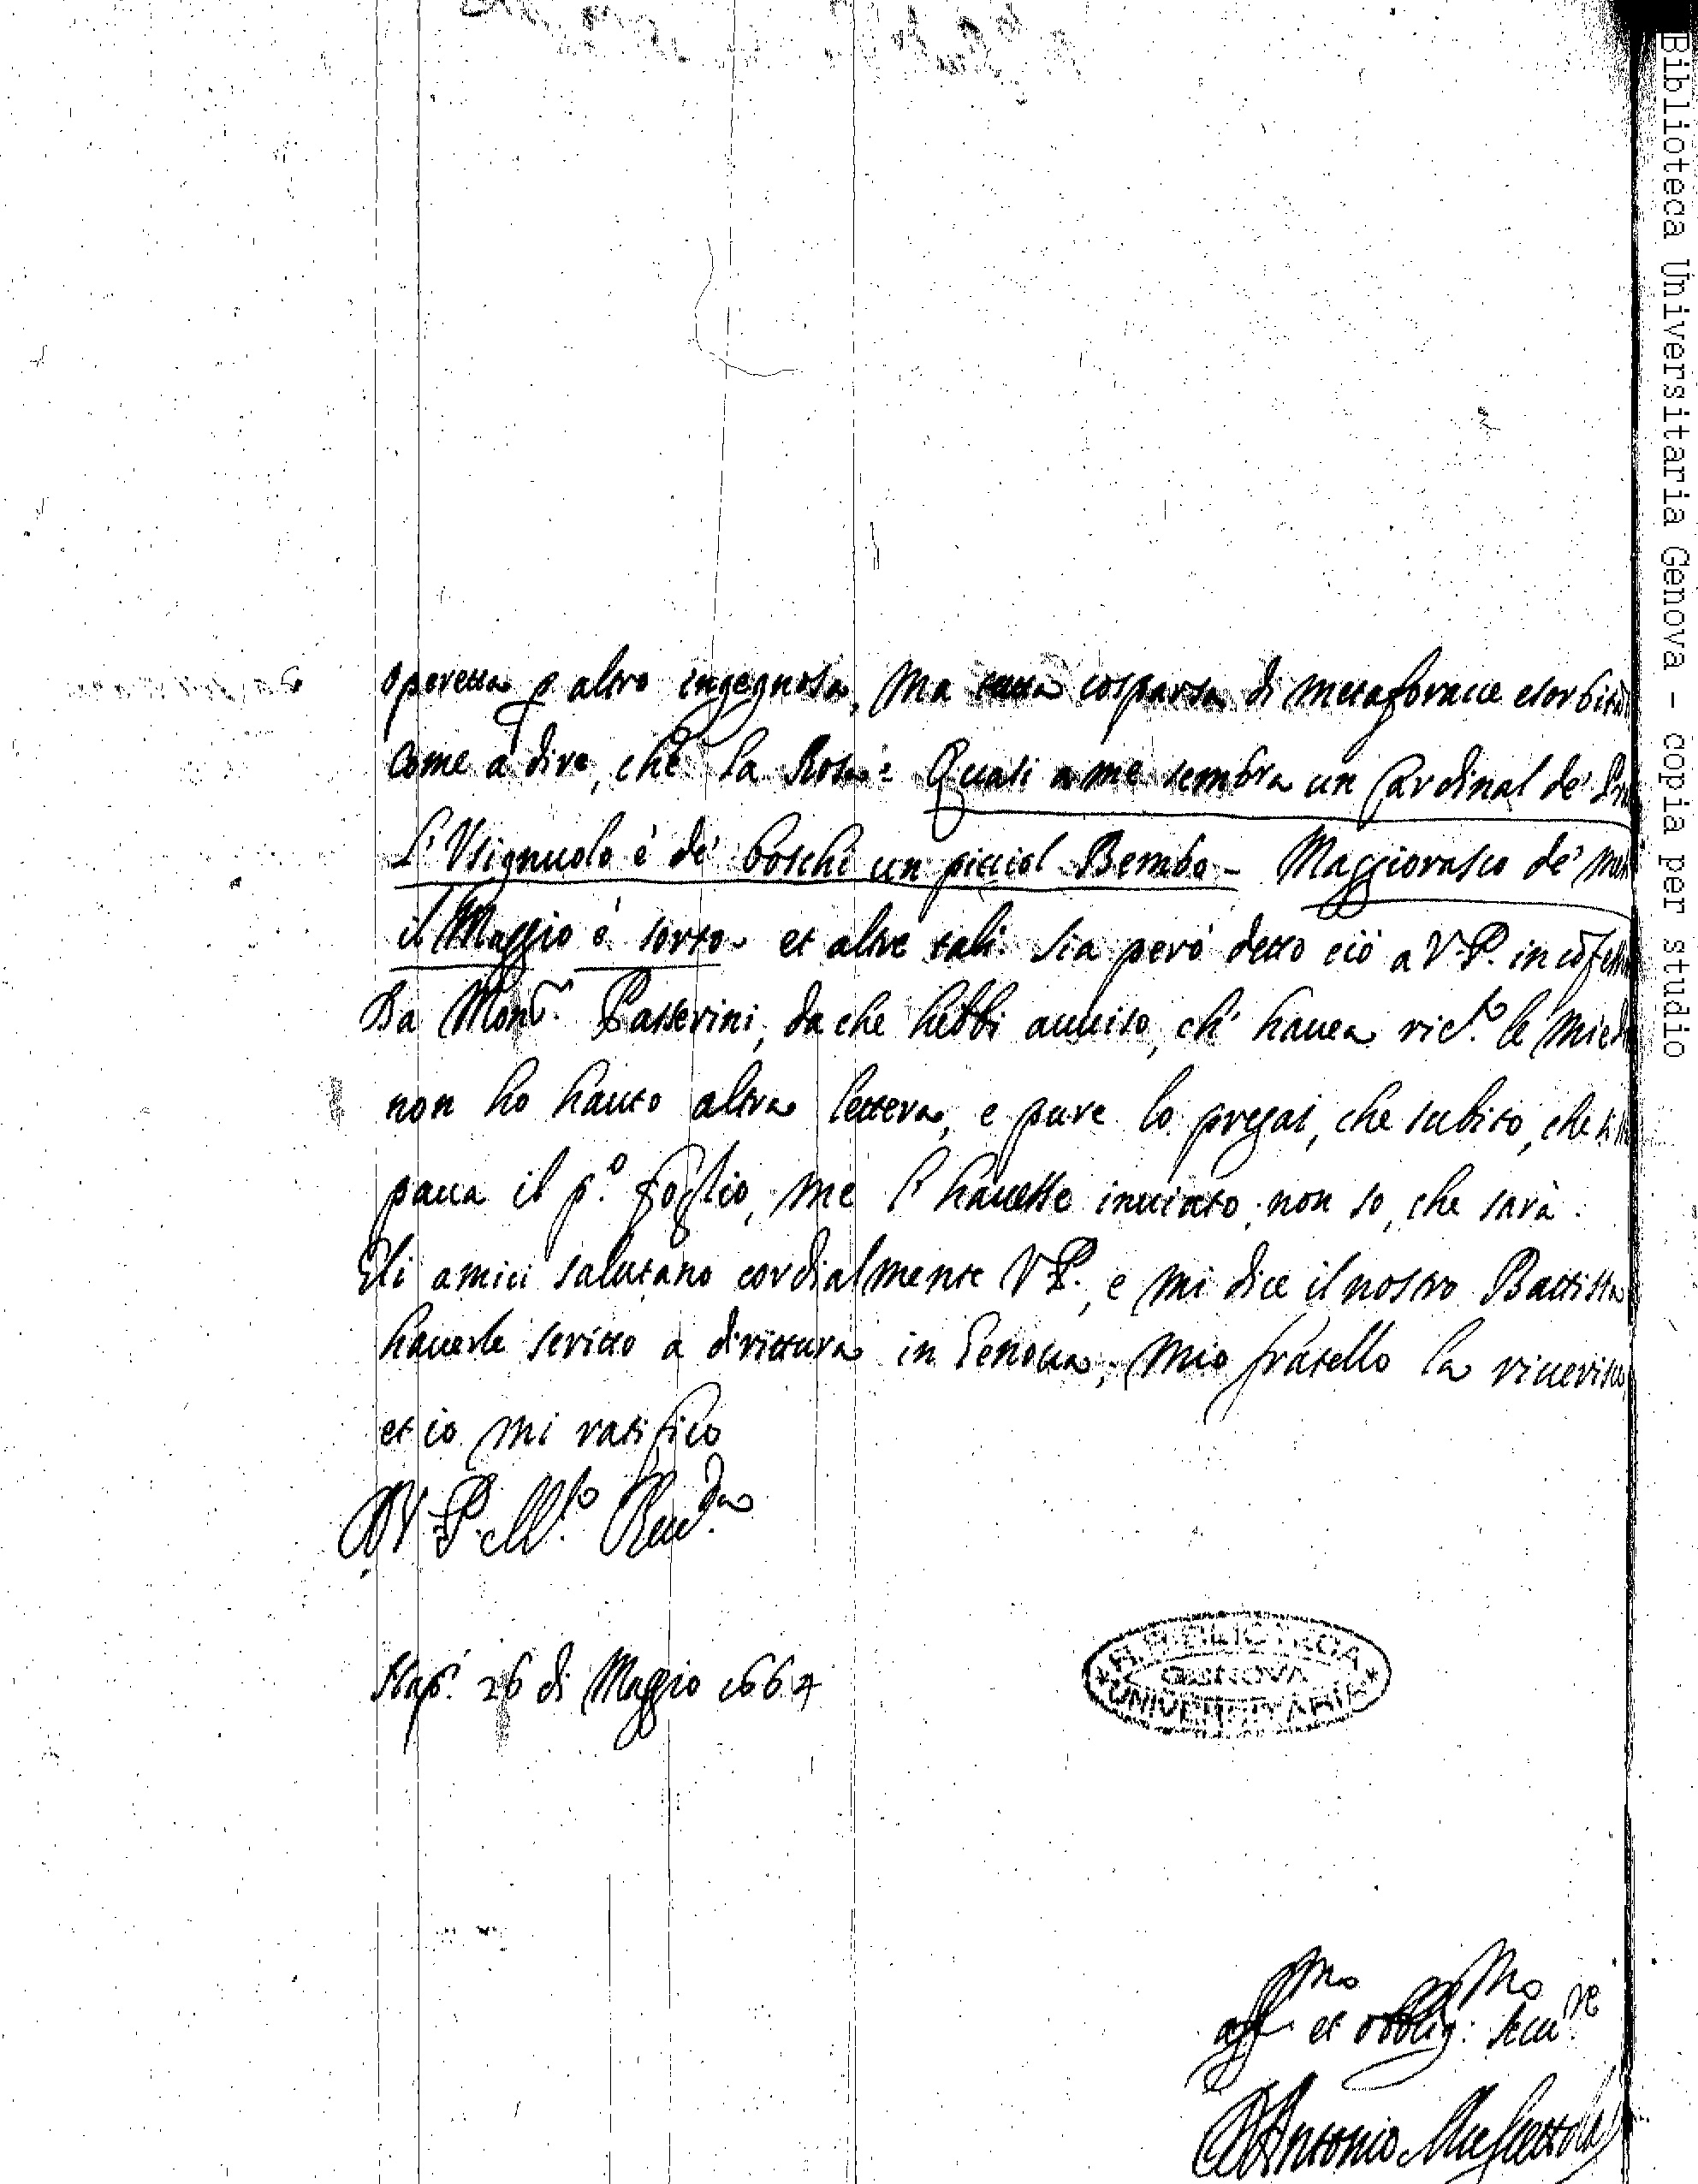 operetta p altro ingegnosa, Ma tutta cosparsa di metaforacce esorbita
come a dire, che la Rosa: Quasi a me sembra un Cardinal de'
L'Usignuolo è de' boschi un picciol Bembo - Maggiorasco de'
il Maggio è sorto - et altre tali. Sia però detto ciò a V.P. in cõfess
Da Monsr. Passerini, da che hebbi auuiso, ch' hauea ricto. le Mie
non ho hauto altra lettera, e pure lo pregai, che subito, che
paua il po. foglio, me l'hauesse inuiato; non so, che sarà.
Gli amici salutano cordialmente V.P., e mi dice il nostro Battista
hauerle scritto a dirittura in Genoua; Mio fratello la riuerisce,
et io mi ratifico
D V. P. M.to Reu.da
Nap. 26 di Maggio 1664
affmo et obbligmo: seure
D Antonio Muscettola
R. BIBLIOTECA
GENOVA
UNIVERSITARIA
Biblioteca Universitaria Genova - copia per studio